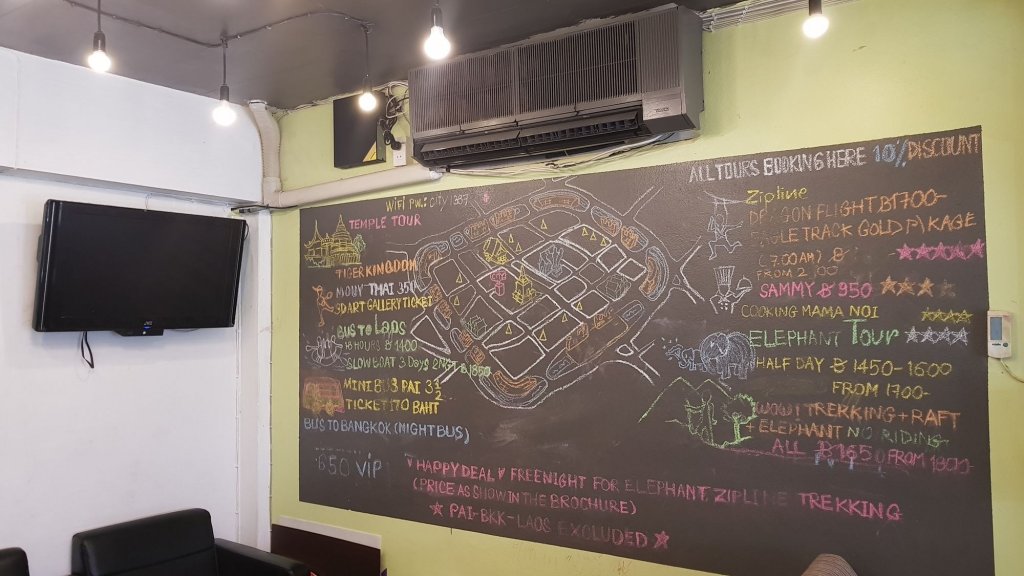 WiFi PW: CITY 1387
TEMPLE TOUR
TIGER KINGDOM
MOUY THAI 350
3D ART GALLERY TICKET
BUS TO LAOS
HOURS ฿ 1400
SLOW BOAT 3 DAYS
MINIBUS PAI 3½
TICKET 170 BAHT
BUS TO BANGKOK (NIGHT BUS)
650 VIP
ALL TOURS BOOKING HERE 10% DISCOUNT
Zipline
DRAGON FLIGHT ฿1700-
TRACK GOLD PAKAGE
(7:00AM) ฿
FROM
SAMMY ฿ 950
COOKING MAMA NOI
ELEPHANT Tour
HALF DAY ฿ 1450-1600
FROM 1700-
WOW! TREKKING + RAFT
+ ELEPHANT NO RIDING
ALL ฿ 1650 FROM 1800-
♥ HAPPY DEAL ♥ FREENIGHT FOR ELEPHANT, ZIPLINE TREKKING
(PRICE AS SHOW IN THE BROCHURE)
★ PAI-BKK-LAOS EXCLUDED ★